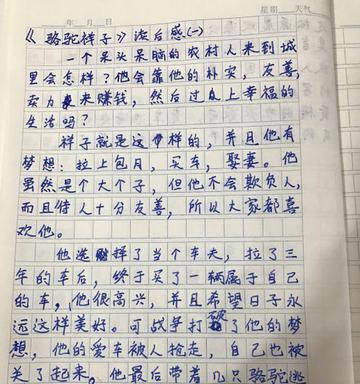 年 月 日 星期 天气
《骆驼祥子》读后感(一)
一个呆头呆脑的农村人来到城
里会怎样？他会靠他的朴实，友善，
卖力来赚钱，然后过上幸福的
生活吗？
祥子就是这样的，并且他有
梦想：拉上包月，买车，娶妻。他
虽然是个大个子，但他不会欺负人，
而且待人十分友善，所以大家都喜
欢他。
他选择了当个车夫，拉了三
年的车后，终于买了一辆属于自己
的车，他很高兴，并且希望日子永
远这样美好。可战争打破了他的梦
想，他的爱车被人抢走，自己也被
关了起来。他最后带着几只骆驼逃